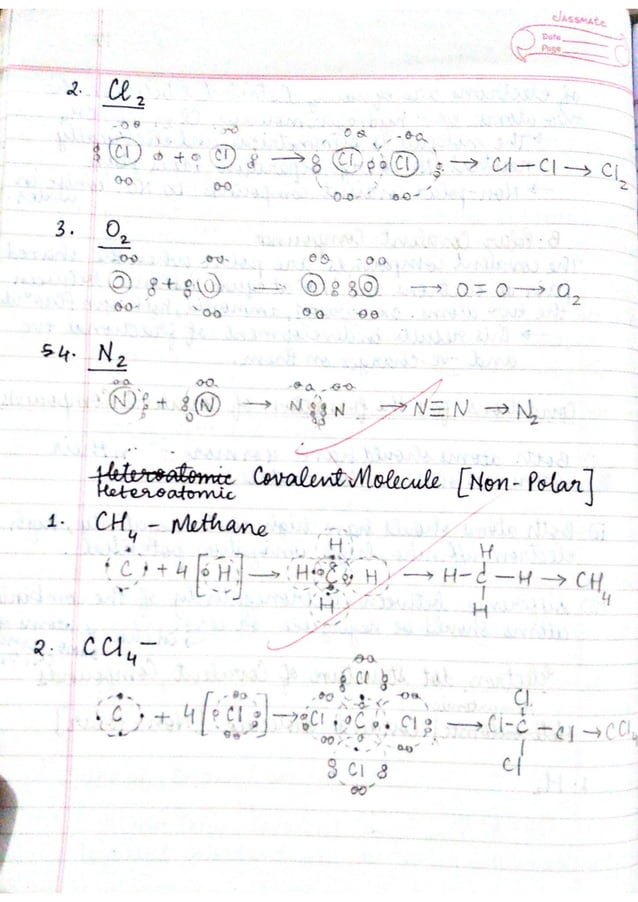 classmate
Date
Page
2. Cl2
Cl + Cl → Cl Cl → Cl—Cl → Cl2
3. O2
O + O O O → O=O → O2
4. N2
N + N → N N → N≡N → N2
Heteroatomic Covalent Molecule [Non-Polar]
Heteroatomic
1. CH4 – Methane
C + 4[H] → H H C H H → H–C–H H H → CH4
2. CCl4 –
C + 4[Cl] → Cl Cl C Cl Cl → Cl Cl–C Cl Cl → CCl4